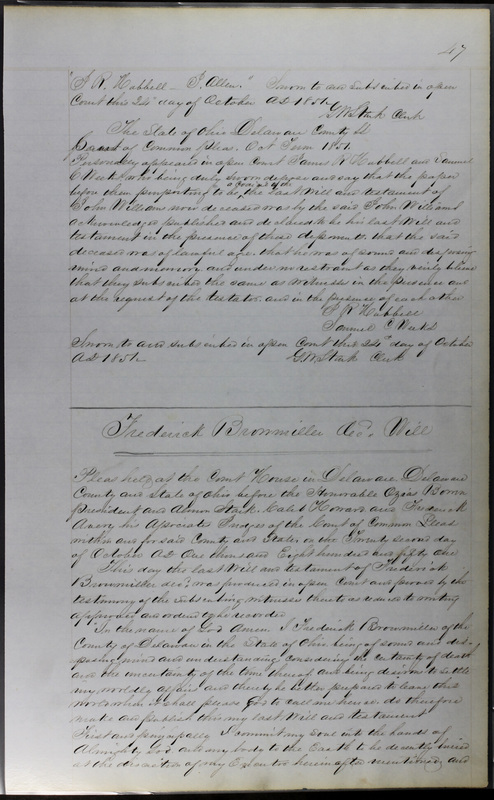 47
"J. R. Hubbell – J. Allen." Sworn to and subscribed in open
Court this 24" day of October AD 1851.
G W Stark Clerk
The State of Ohio Delaware County SS
Court of Common Pleas. Oct Term 1851.
Personally appeared in open Court James R Hubbell and Samuel
C Weeks who being duly sworn depose and say that the paper
before them purporting to be a true copy of the last Will and testament of
John Williams now deceased was by the said John Williams
acknowledged published and declared to be his last Will and
testament in the presence of these deponents. that the said
deceased was of lawful age. that he was of sound and disposing
mind and memory and under no restraint as they verily believe
that they subscribed the same as witnesses in the presence and
at the request of the testator and in the presence of each other
J R Hubbell
Samuel C Weeks
Sworn to and subscribed in open Court this 24" day of October
AD 1851. G W Stark Clerk
Frederick Brownmiller Decd. Will
Pleas held at the Court House in Delaware. Delaware
County and State of Ohio before the Honorable Ozias Bowen
president and Almon Stark. Caleb Howard and Frederick
Avery his Associate Judges of the Court of Common Pleas
within and for said County and State on the Twenty second day
of October AD One thousand Eight hundred and fifty one
This day the last Will and testament of Frederick
Brownmiller decd. was produced in open Court and proved by the
testimony of the subscribing witnesses thereto as reduced to writing
approved and ordered to be recorded.
In the name of God Amen. I Frederick Brownmiller of the
County of Delaware in the State of Ohio being of sound and dis-
posing mind and understanding considering the certainty of death
and the uncertainty of the time thereof and being desirous to settle
my worldly affairs and thereby be better prepared to leave this
world when it shall please God to call me hence. do therefore
make and publish this my last Will and testament
First and principally I commit my Soul into the hands of
Almighty God and my body to the Earth to be decently buried
at the discretion of my Executor hereinafter mentioned, and